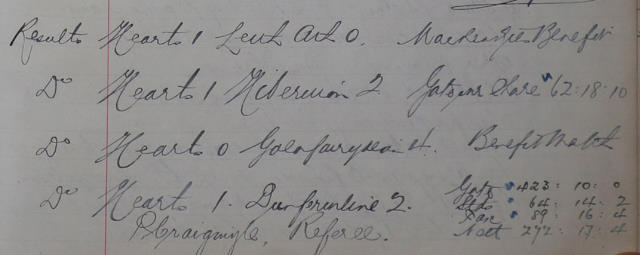 Results Hearts 1 Leith Ath 0. Benefit
Do Hearts 1 Hibernian 2 Gate our Share 62:18:10
Do Hearts 0 Galafairydean 4. Benefit Match
Do Hearts 1. Dunfermline 2. Gate 423: 10: 0
64: 14: 2
89: 16: 4
P. Craigmyle, Referee. Nett 272: 17: 4